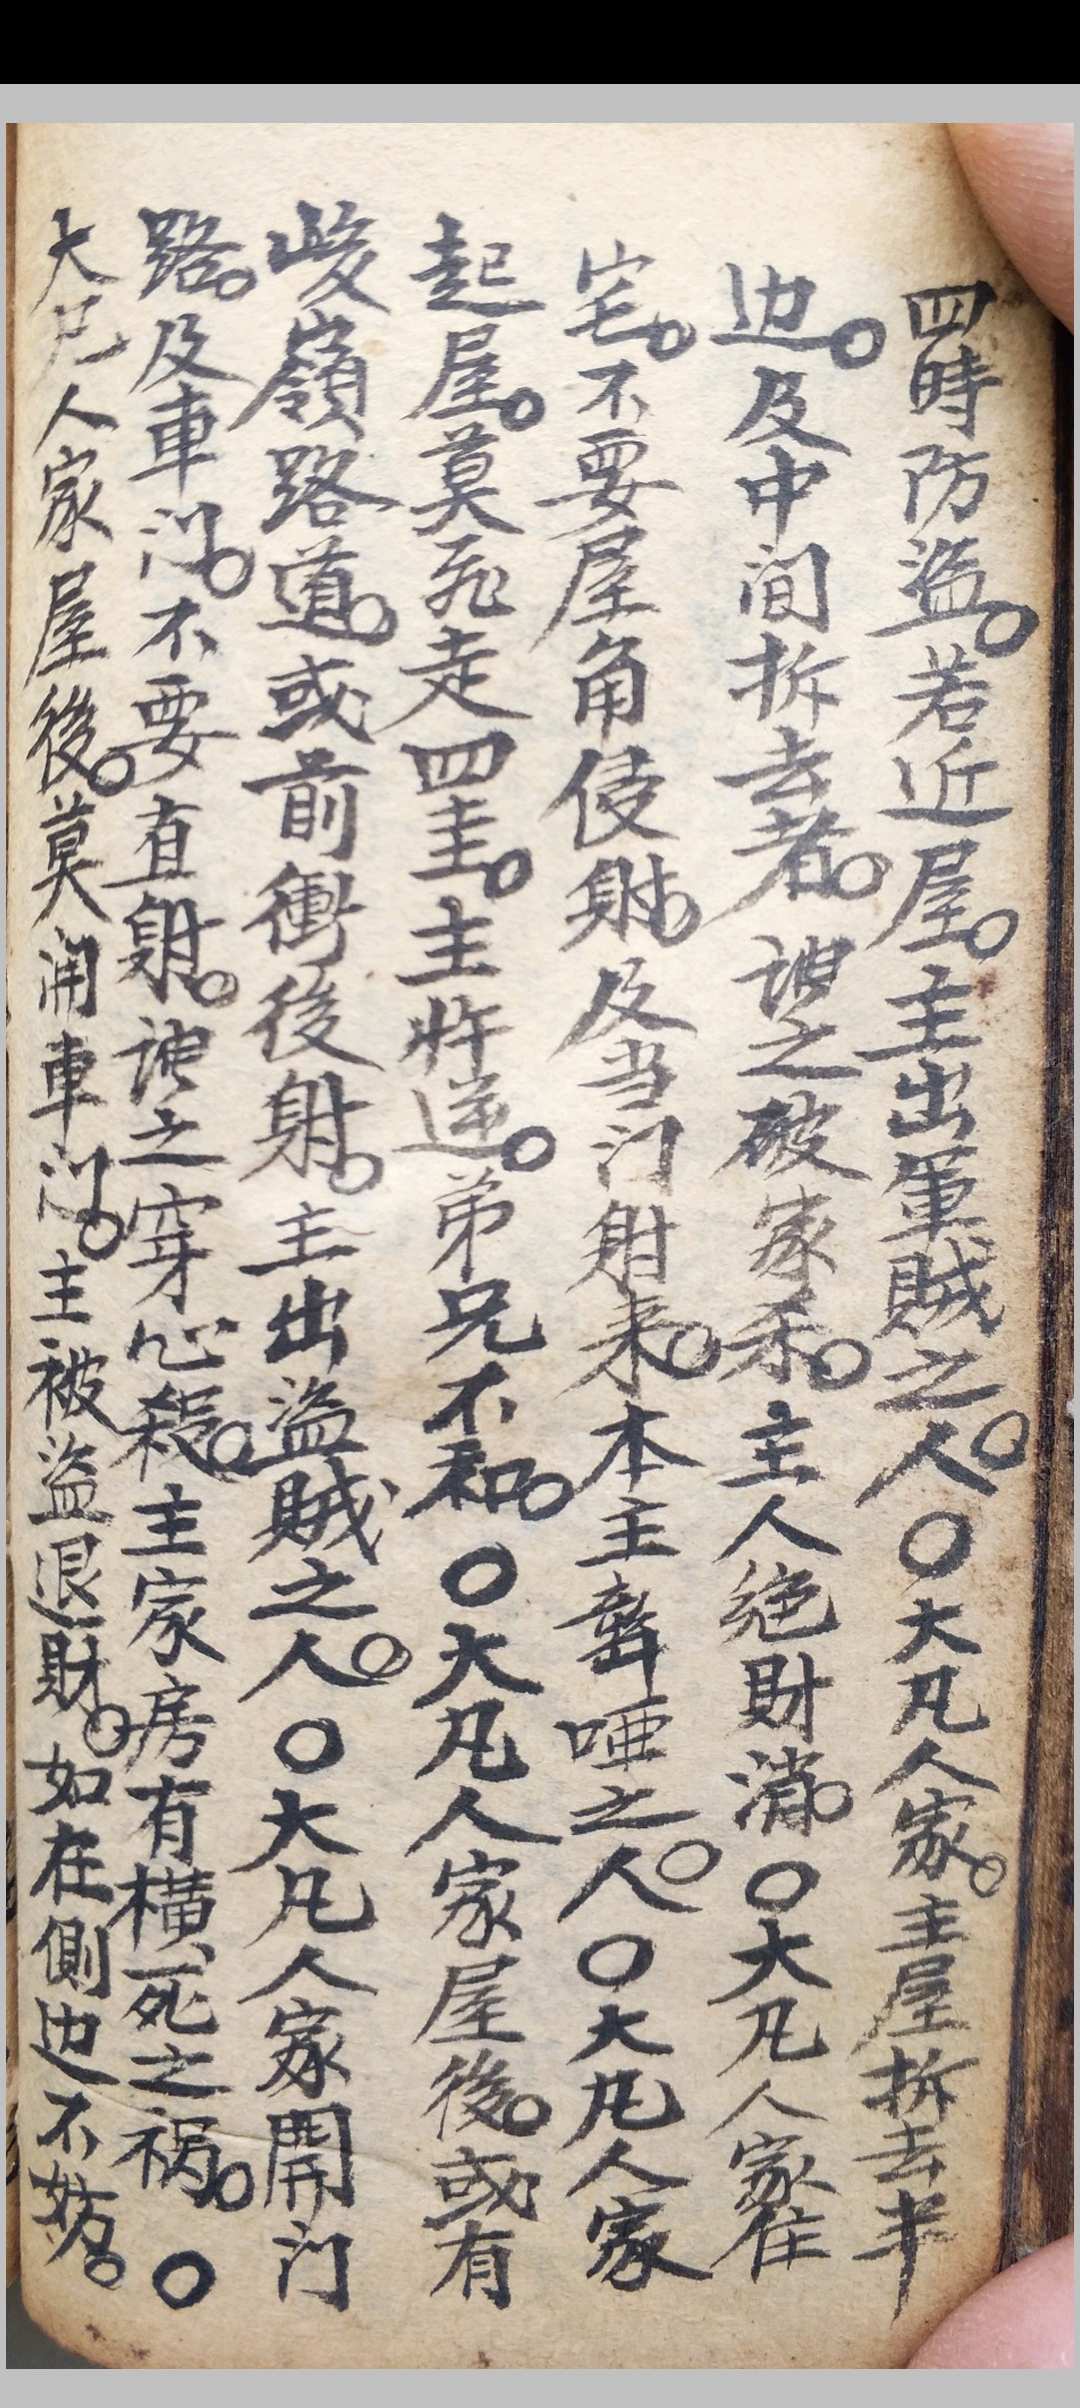 四時防盗。若近屋。主出軍賊之人。〇大凡人家。主屋拆去半
边。及中间拆去者。谓之破家杀。主人绝財消。〇大凡人家住
宅。不要屋角侵射。及当门射来。本主聾啞之人。〇大凡人家
起屋。莫飛走四圭。主忤逆。弟兄不和。〇大凡人家屋後。或有
峻嶺路道。或前衝後射。主出盗賊之人。〇大凡人家開门
路。及車门。不要直射。谓之穿心殺。主家房有横死之祸。〇
大凡人家屋後。莫開車门。主被盗退財。如在側边不妨。